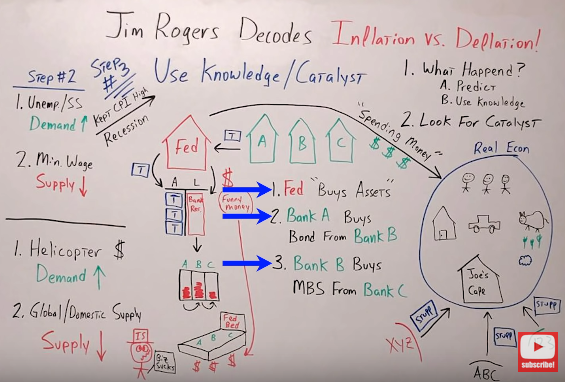 Jim Rogers Decodes Inflation vs. Deflation!
Step #2
1. Unemp./SS
Demand ↑
2. Min. Wage
Supply ↓
1. Helicopter $
Demand ↑
2. Global/Domestic Supply
Supply ↓
STEP #3
Use Knowledge/Catalyst
Kept CPI High
Recession
Fed
T
A
B
C
T
A L
Bank Res.
T
T
T
$
Funny Money
A B C
Fed Bed
A B C
$ $ $
IS
Biz Sucks
1. Fed "Buys Assets"
2. Bank A Buys
Bond From Bank B
3. Bank B Buys
MBS From Bank C
1. What Happend?
A. Predict
B. Use Knowledge
2. Look For Catalyst
"Spending Money"
$ $ $
Real Econ
Joe's Cafe
STUFF
STUFF
STUFF
XYZ
ABC
subscribe!